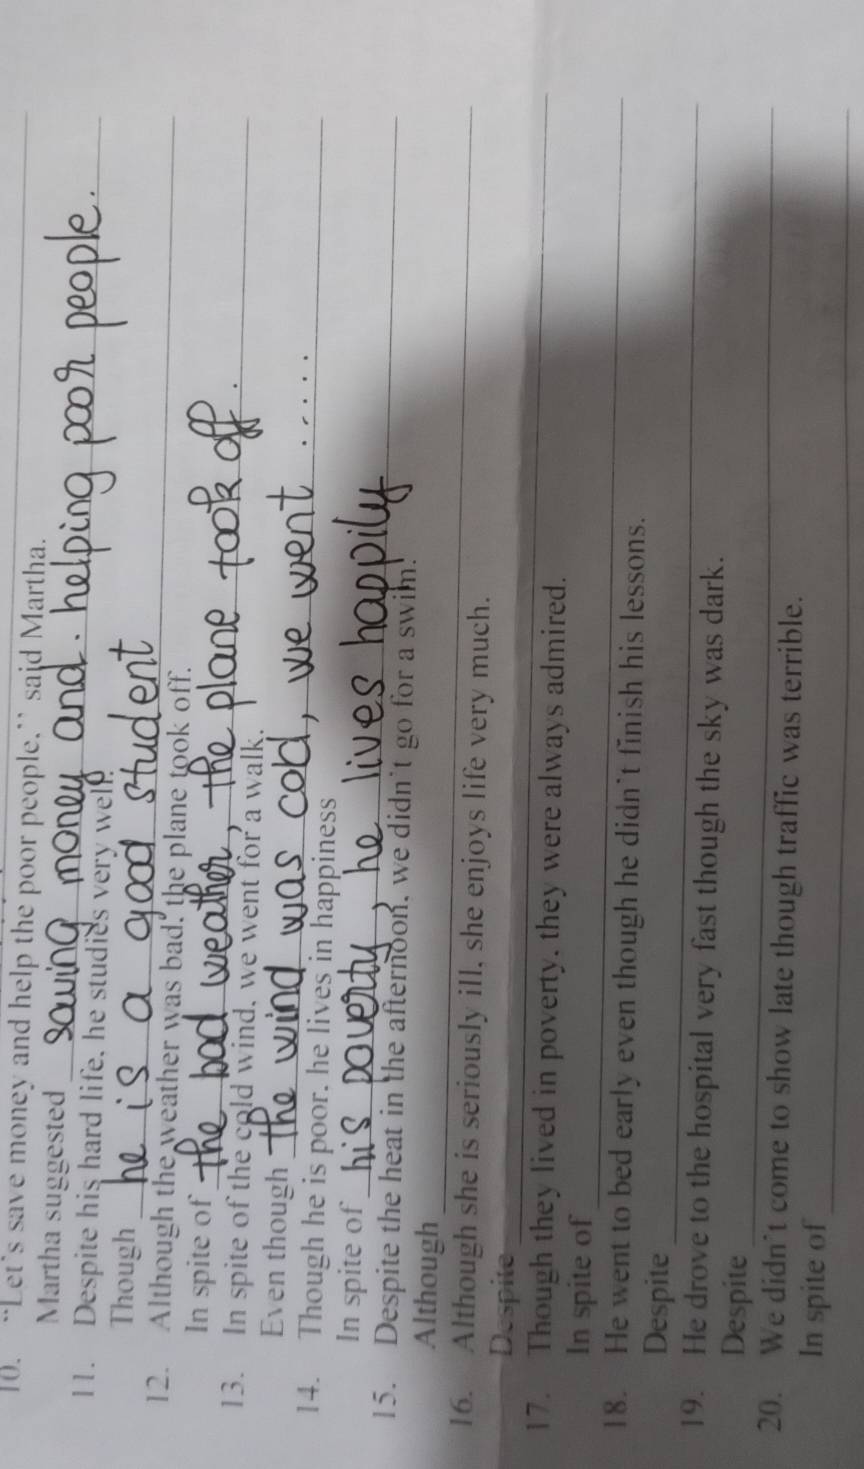 10. "Let's save money and help the poor people," said Martha.
Martha suggested saving money and helping poor people.
11. Despite his hard life, he studies very well.
Though he is a good student
12. Although the weather was bad, the plane took off.
In spite of the bad weather, the plane took off.
13. In spite of the cold wind, we went for a walk.
Even though the wind was cold, we went .....
14. Though he is poor, he lives in happiness
In spite of his poverty, he lives happily
15. Despite the heat in the afternoon, we didn't go for a swim.
Although
16. Although she is seriously ill, she enjoys life very much.
Despite
17. Though they lived in poverty, they were always admired.
In spite of
18. He went to bed early even though he didn't finish his lessons.
Despite
19. He drove to the hospital very fast though the sky was dark.
Despite
20. We didn't come to show late though traffic was terrible.
In spite of